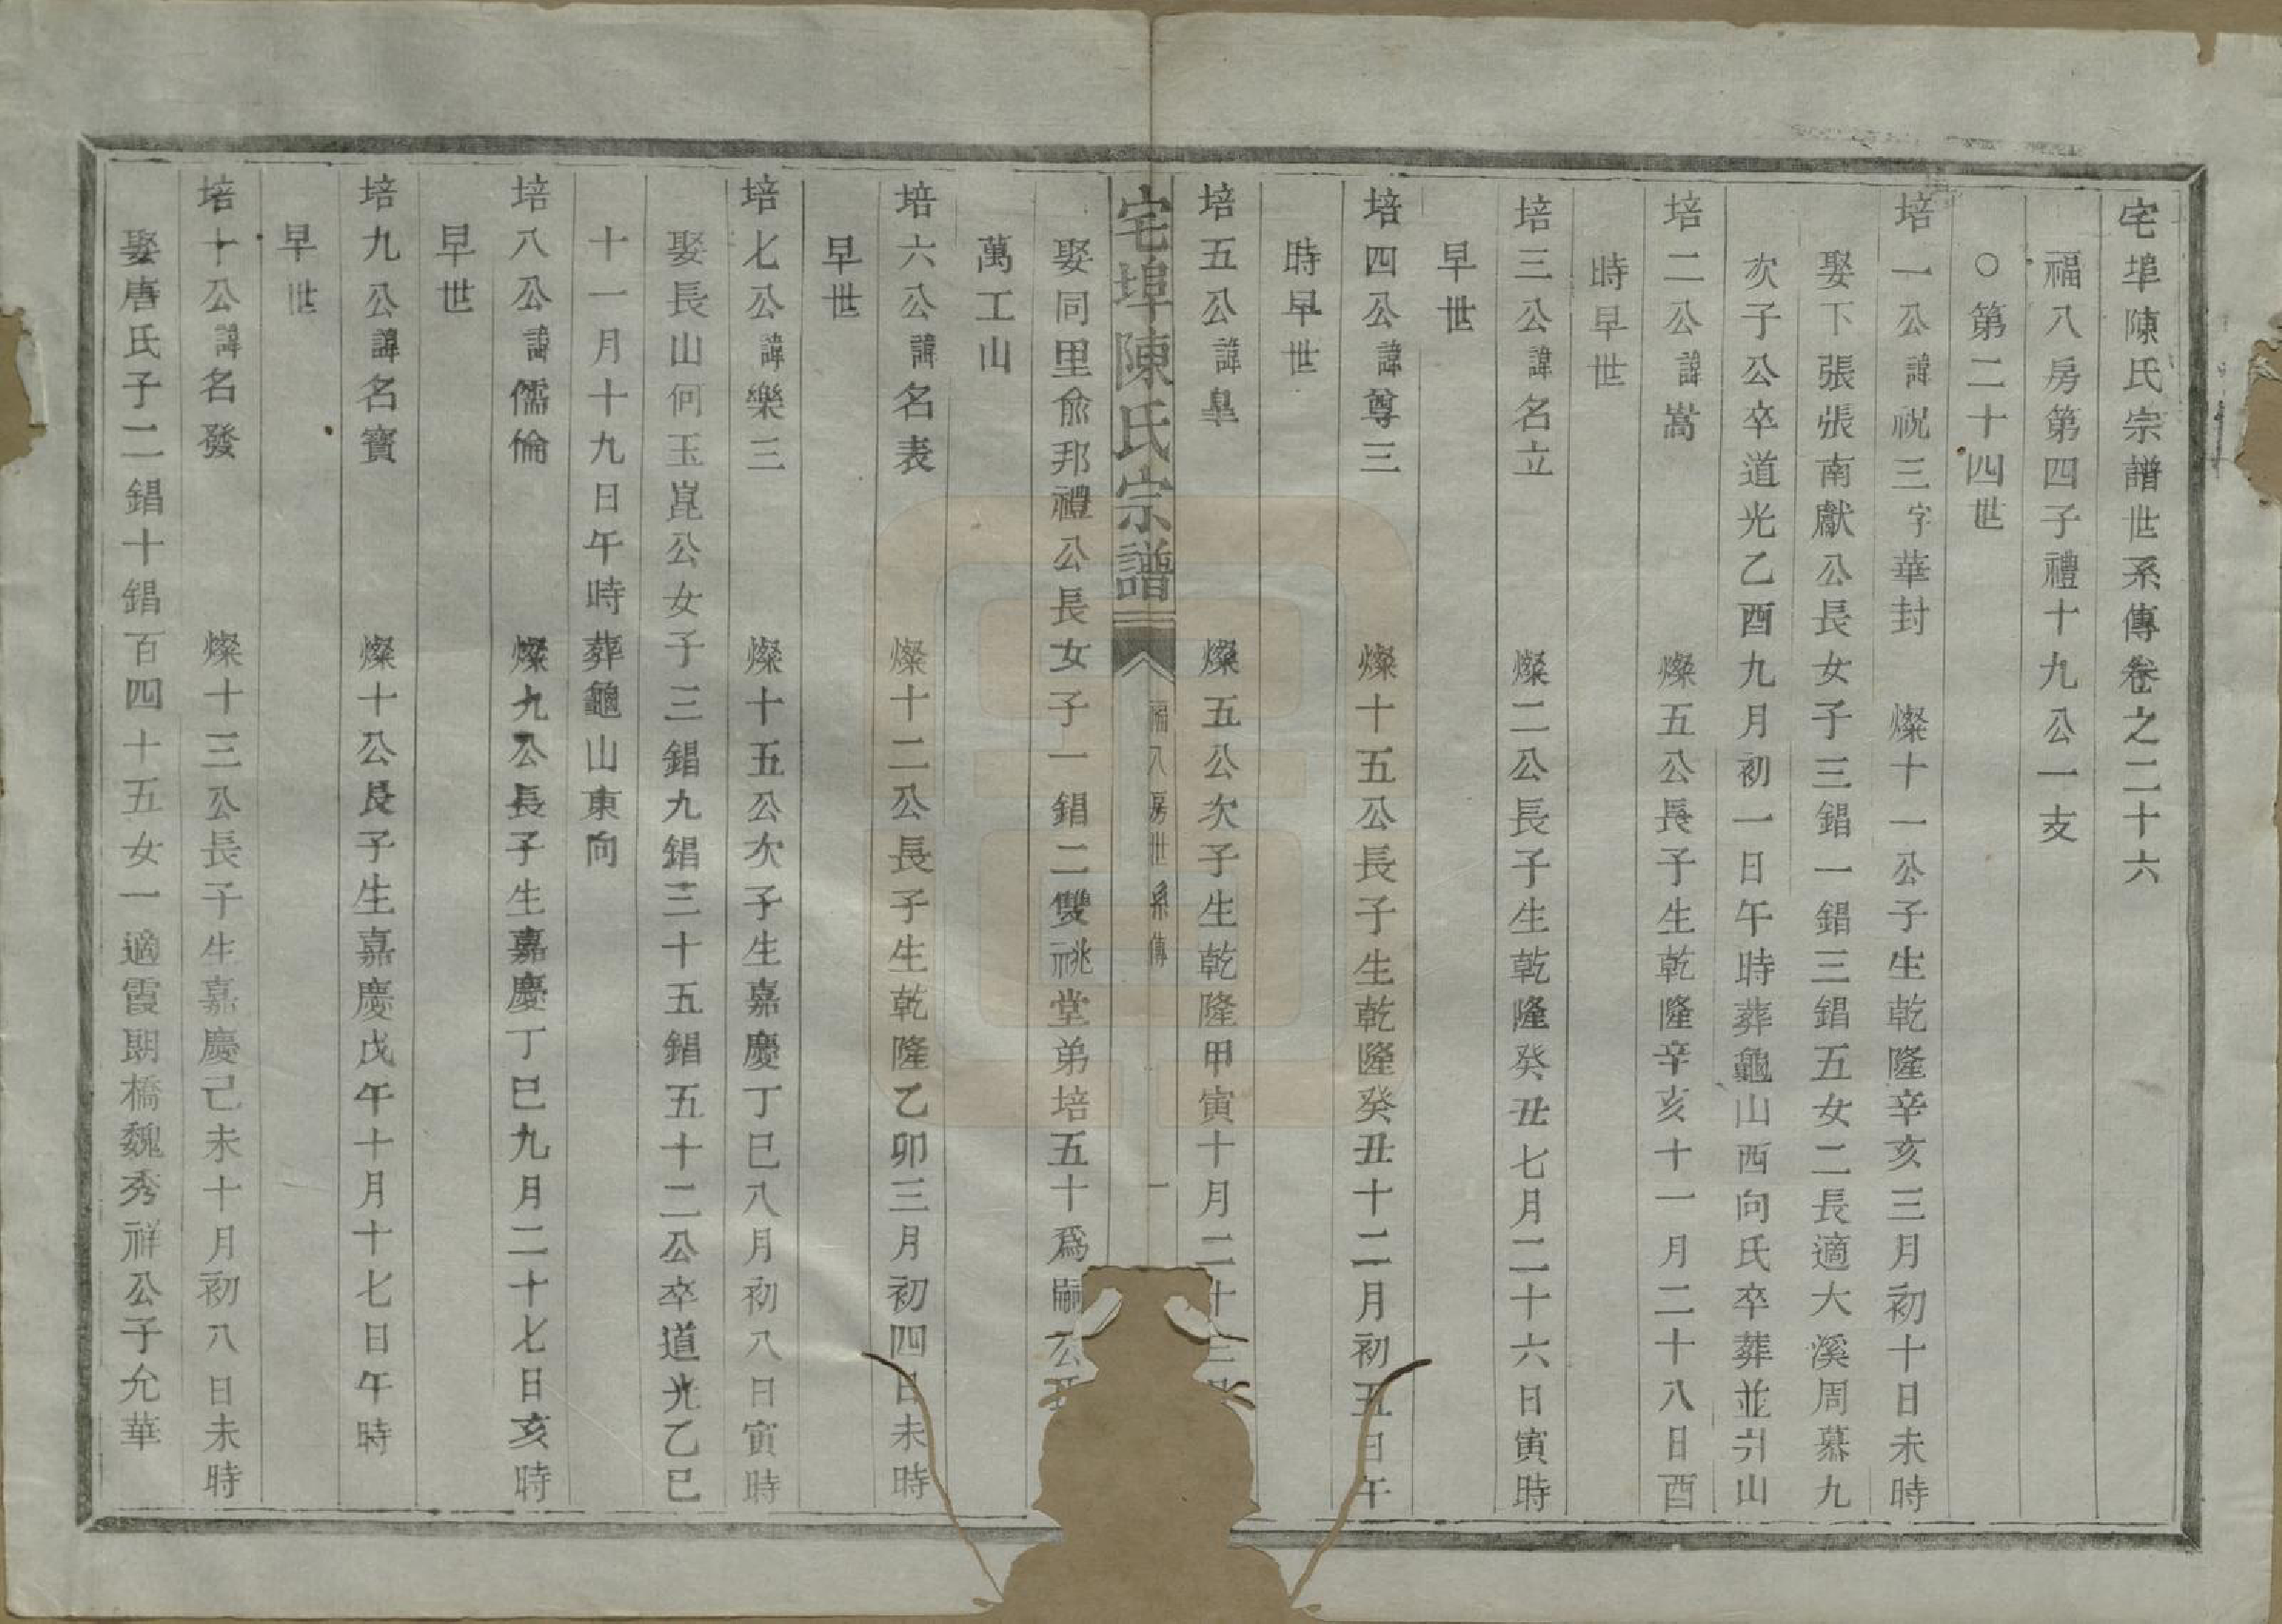 宅埠陳氏宗譜世系傳卷之二十六
福八房第四子禮十九公一支
○第二十四世
培一公諱祝三字華封 燦十一公子生乾隆辛亥三月初十日未時
娶下張張南獻公長女子三錩一錩三錩五女二長適大溪周慕九
次子公卒道光乙酉九月初一日午時葬龜山西向氏卒葬並引山
培二公諱嵩 燦五公長子生乾隆辛亥十一月二十八日酉
時早世
培三公諱名立 燦二公長子生乾隆癸丑七月二十六日寅時
早世
培四公諱尊三 燦十五公長子生乾隆癸丑十二月初五日午
時早世
培五公諱皐 燦五公次子生乾隆甲寅十月二十三
宅埠陳氏宗譜 福八房世系傳 一
娶同里俞邦禮公長女子一錩二雙祧堂弟培五十爲嗣公
萬工山
培六公諱名表 燦十二公長子生乾隆乙卯三月初四日未時
早世
培七公諱樂三 燦十五公次子生嘉慶丁巳八月初八日寅時
娶長山何玉崑公女子三錩九錩三十五錩五十二公卒道光乙巳
十一月十九日午時葬龜山東向
培八公諱儒倫 燦九公長子生嘉慶丁巳九月二十七日亥時
早世
培九公諱名寶 燦十公長子生嘉慶戊午十月十七日午時
早世
培十公諱名發 燦十三公長子生嘉慶己未十月初八日未時
娶唐氏子二錩十錩百四十五女一適霞期橋魏秀祥公子允華